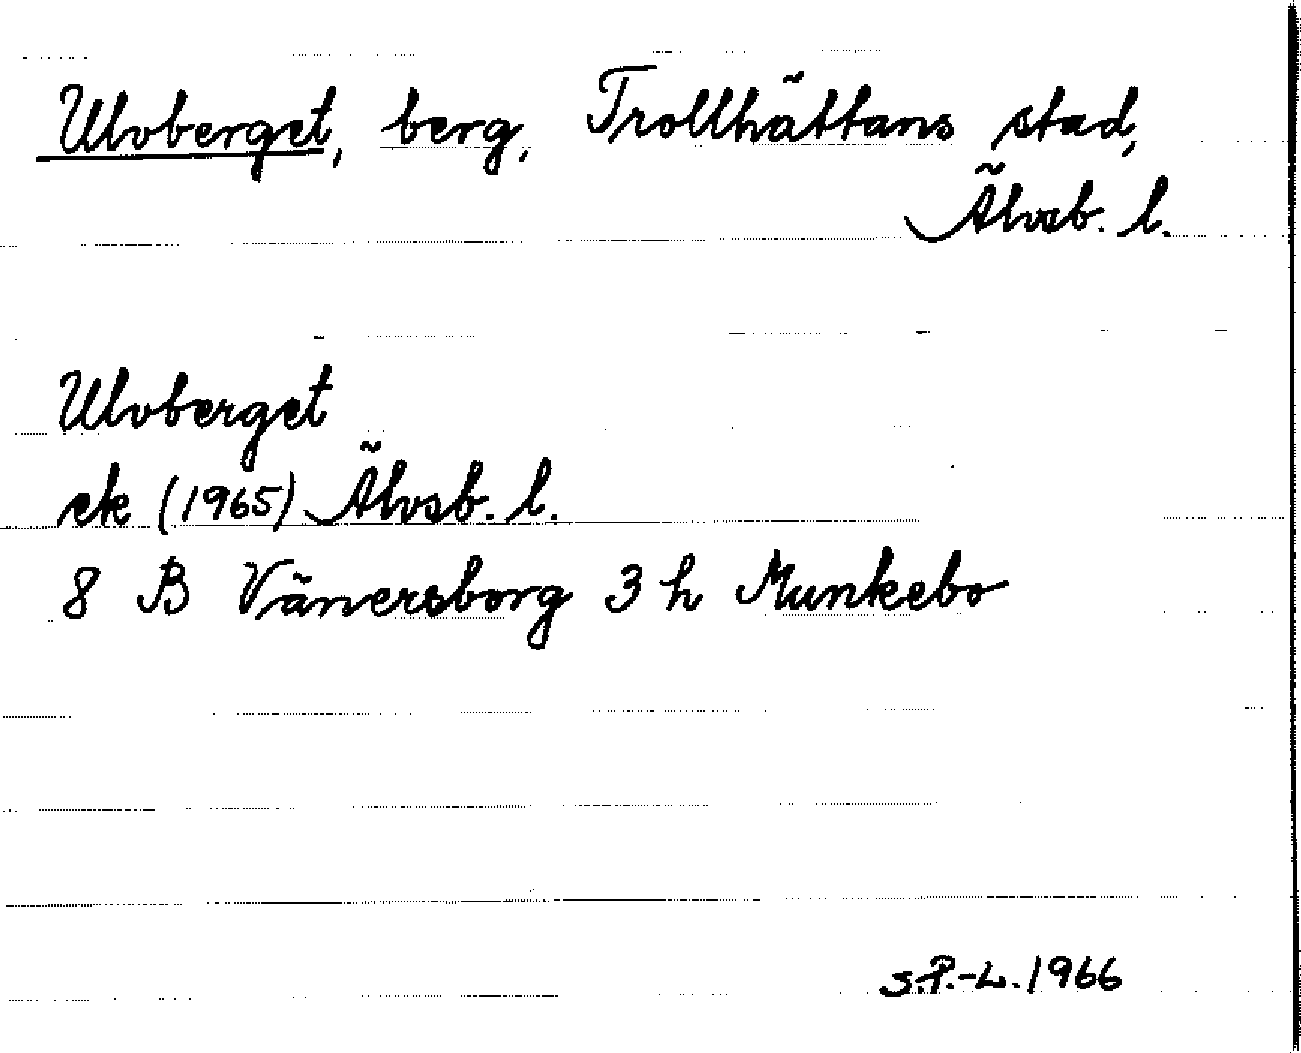 Ulvberget, berg, Trollhättans stad,
Älvsb. l.
Ulvberget
ek (1965) Älvsb. l.
8 B Vänersborg 3 h Munkebo
S.P.-L. 1966